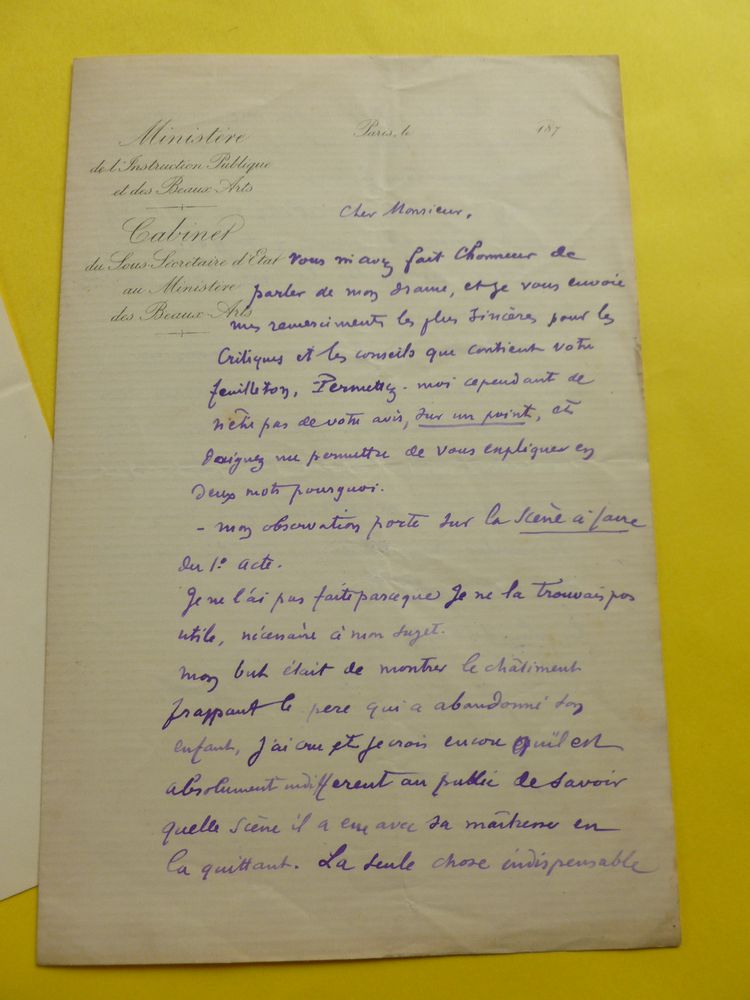 Ministère
de l'Instruction Publique
et des Beaux-Arts
Cabinet
du Sous-Secrétaire d'Etat
au Ministère
des Beaux-Arts
Paris, le 187
Cher Monsieur,
Vous m'avez fait l'honneur de
parler de mon drame, et je vous envoie
mes remerciments les plus sincères pour les
Critiques et les conseils que contient votre
feuilleton. Permettez-moi cependant de
n'être pas de votre avis, sur un point, et
daignez me permettre de vous expliquer en
deux mots pourquoi.
- mon observation porte sur la scène à faire
du 1º acte.
Je ne l'ai pas faite parceque je ne la trouvais pas
utile, nécessaire à mon sujet.
mon but était de montrer le châtiment
frappant le père qui a abandonné son
enfant, j'ai cru et je crois encore qu'il est
absolument indifferent au public de savoir
quelle scène il a eue avec sa maîtresse en
la quittant. La seule chose indispensable